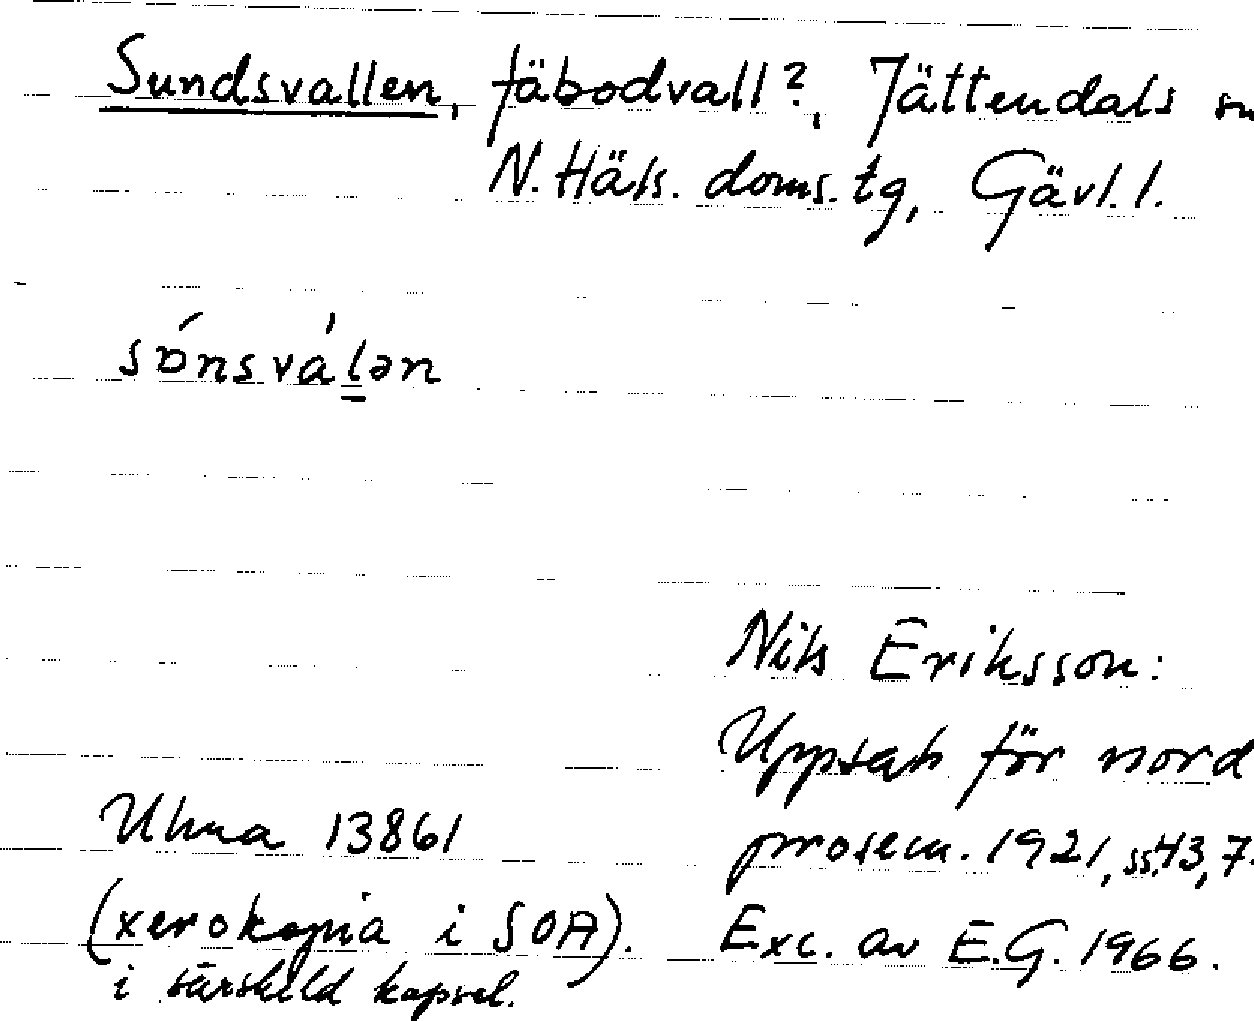 Sundsvallen, fäbodvall?, Jättendals sn
N. Häls. doms. tg, Gävl. l.
sɒ́nsválən
Nils Eriksson:
Uppsats för nord
Ulma 13861
prosem. 1921, ss. 43, 7.
(xerokopia i SOA).
Exc. av E.G. 1966.
i särskild kapsel.